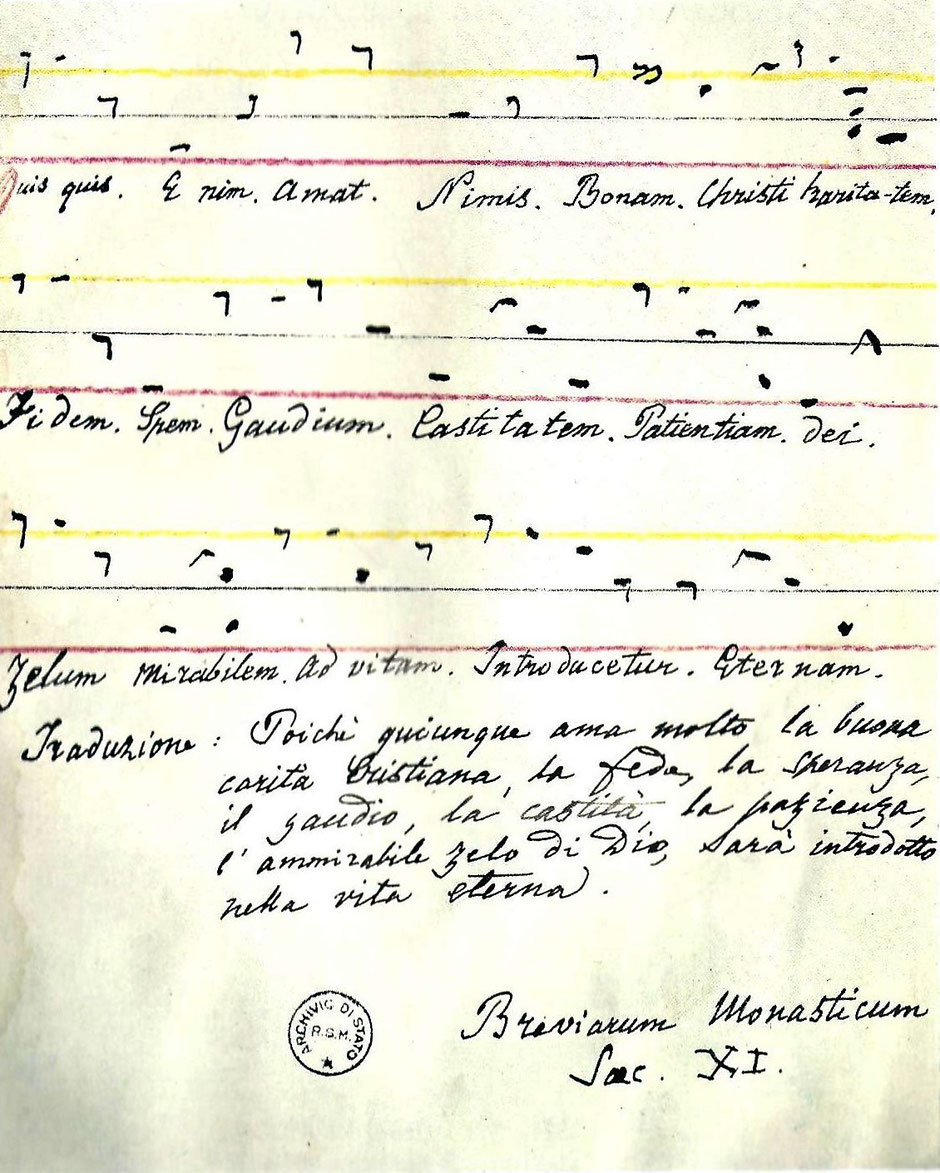 Quis quis. E nim. Amat. Nimis. Bonam. Christi karita-tem,
Fi dem. Spem. Gaudium. Casti ta tem. Patientiam. dei.
Zelum mirabilem. Ad vitam. Introducetur. Eternam.
Traduzione: Poichè quiunque ama molto la buona
carità Cristiana, la fede, la speranza,
il gaudio, la castità, la pazienza,
l'ammirabile zelo di Dio, sarà introdotto
nella vita eterna.
ARCHIVIO DI STATO
R.S.M.
Breviarum Monasticum
Saec. XI.